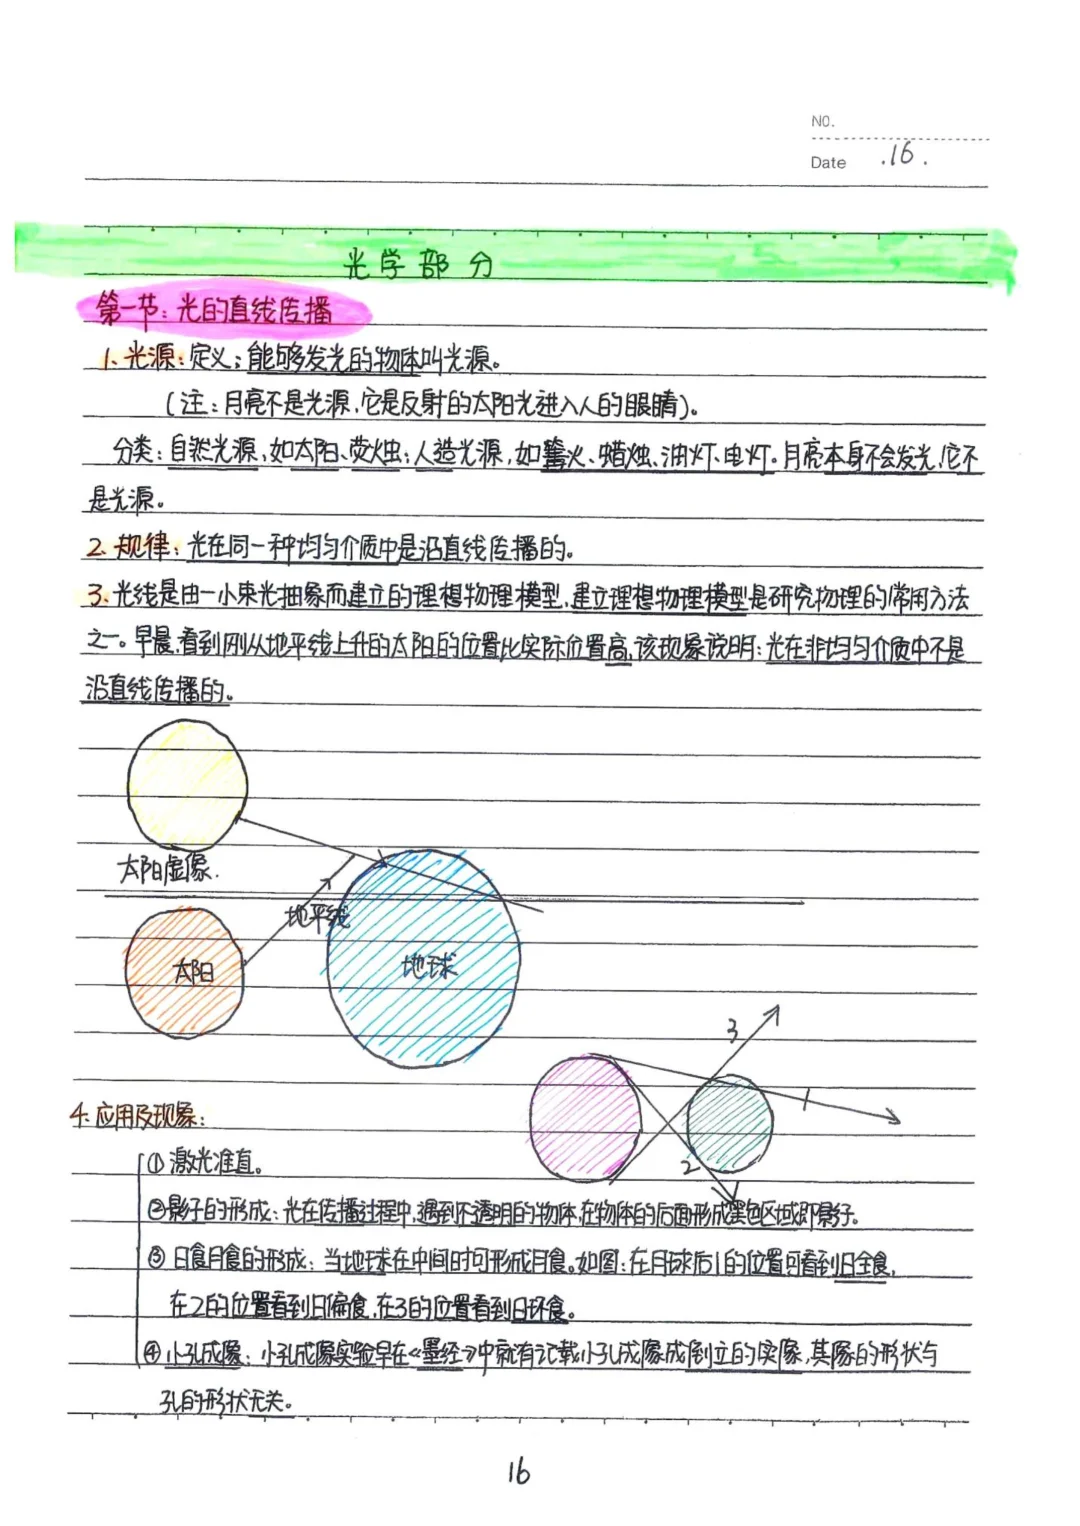 NO.
Date .16.
光学部分
第一节:光的直线传播
1、光源:定义:能够发光的物体叫光源。
(注:月亮不是光源,它是反射的太阳光进入人的眼睛)。
分类:自然光源,如太阳、荧火虫;人造光源,如篝火、蜡烛、油灯、电灯。月亮本身不会发光,它不
是光源。
2、规律:光在同一种均匀介质中是沿直线传播的。
3、光线是由一小束光抽象而建立的理想物理模型,建立理想物理模型是研究物理的常用方法
之一。早晨,看到刚从地平线上升的太阳的位置比实际位置高,该现象说明:光在非均匀介质中不是
沿直线传播的。
太阳虚像.
地平线
太阳
地球
3
1
2
4、应用及现象:
①激光准直。
②影子的形成:光在传播过程中,遇到不透明的物体,在物体的后面形成黑色区域即影子。
③日食月食的形成:当地球在中间时可形成月食。如图:在月球后1的位置可看到日全食,
在2的位置看到日偏食,在3的位置看到日环食。
④小孔成像:小孔成像实验早在《墨经》中就有记载小孔成像成倒立的实像,其像的形状与
孔的形状无关。
16